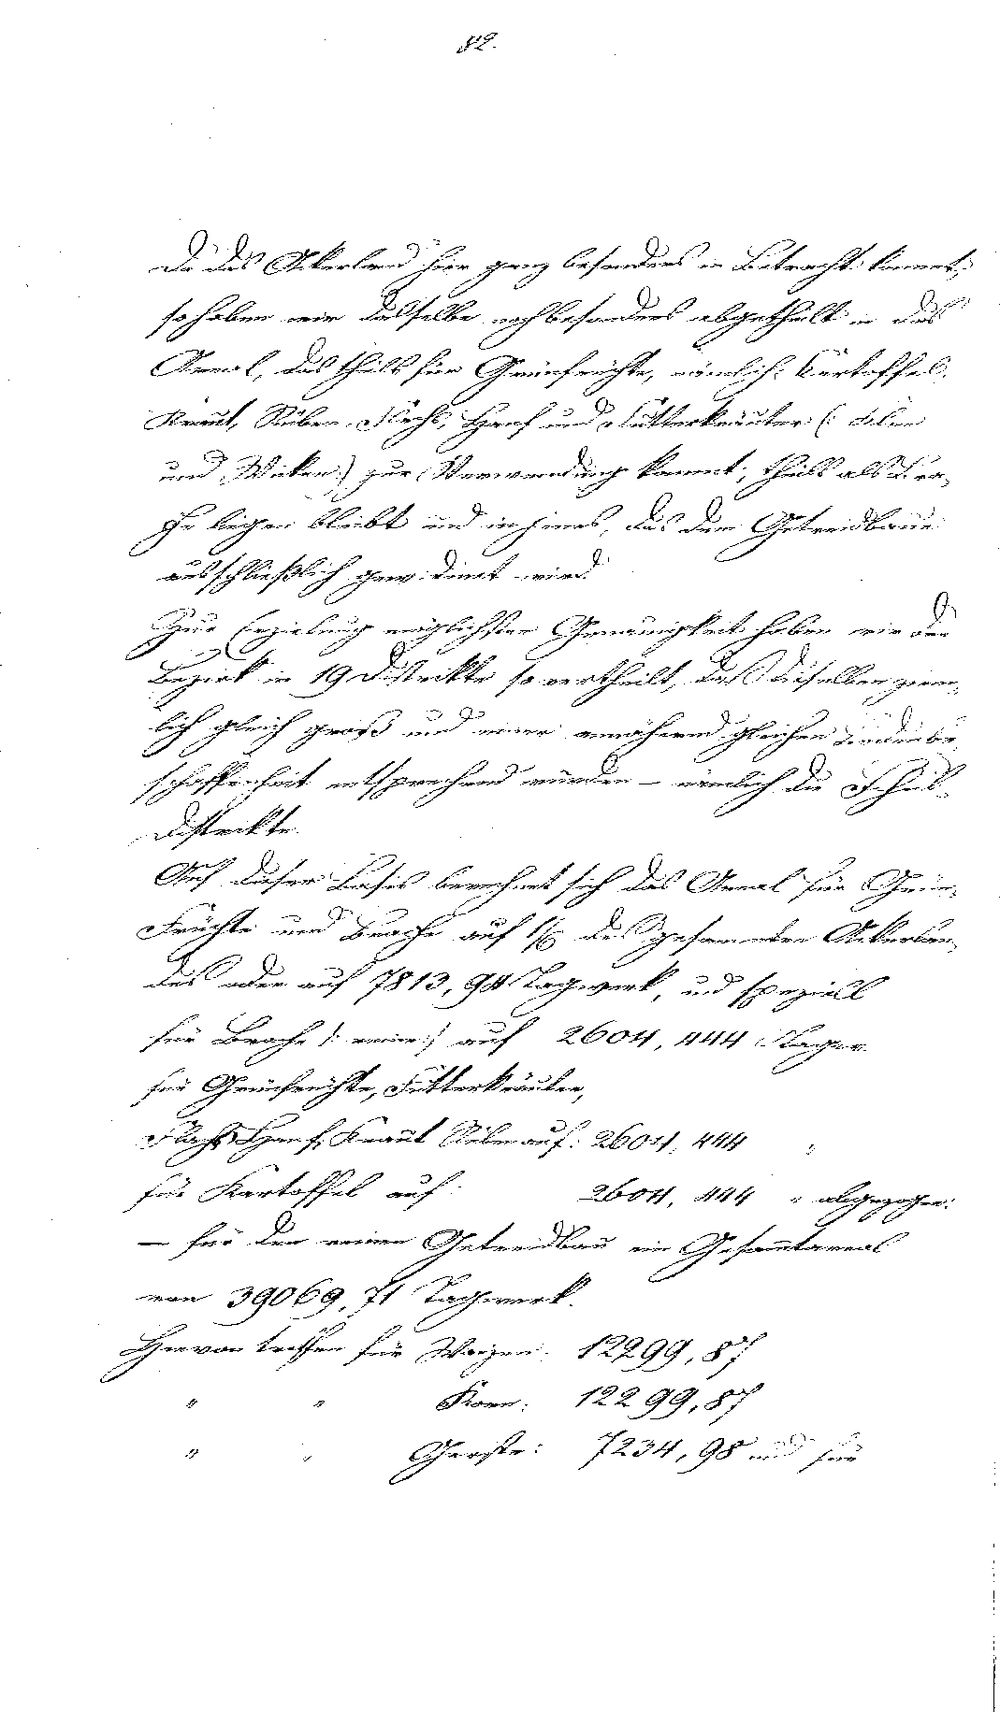 82.
Da das Ackerland hier ganz besonders in Betracht kommt,
so haben wir dasselbe noch besonders abgetheilt in das
Areal, das theils für Grünfrüchte, nämlich: Kartoffel,
Kraut, Rüben, Flachs, Hanf und Futterkräuter (: Klee
und Wicken :) zur Verwendung kommt, theils als Bra-
che liegen bleibt und in jenes, das dem Getreidbaue
ausschließlich gewidmet wird.
Zur Erzielung möglichster Genauigkeit haben wir den
Bezirk in 19 Distrikte so vertheilt, daß dieselben ziem-
lich gleich groß und einer annähernd gleichen Bodenbe-
schaffenheit entsprechend wurden – nämlich die Schul-
Distrikte.
Auf dieser Basis berechnet sich das Areal für Grün-
Früchte und Brache auf 1/6 des gesammten Ackerlan-
des oder auf 7813,94 Tagwerk, und speziell
für Brache (: reine :) auf 2604,444 Tagw.
für Grünfrüchte, Futterkräuter,
Flachs, Hanf, Kraut Rüben auf: 2604,444 "
für Kartoffel auf: 2604,444 " abgezogen:
– für den reinen Getreidbau ein Gesammtareal
von 39069,71 Tagwerk.
Hievon treffen für Waizen: 12299,87
" " Korn: 12299,87
" " Gerste: 7234,98 und für